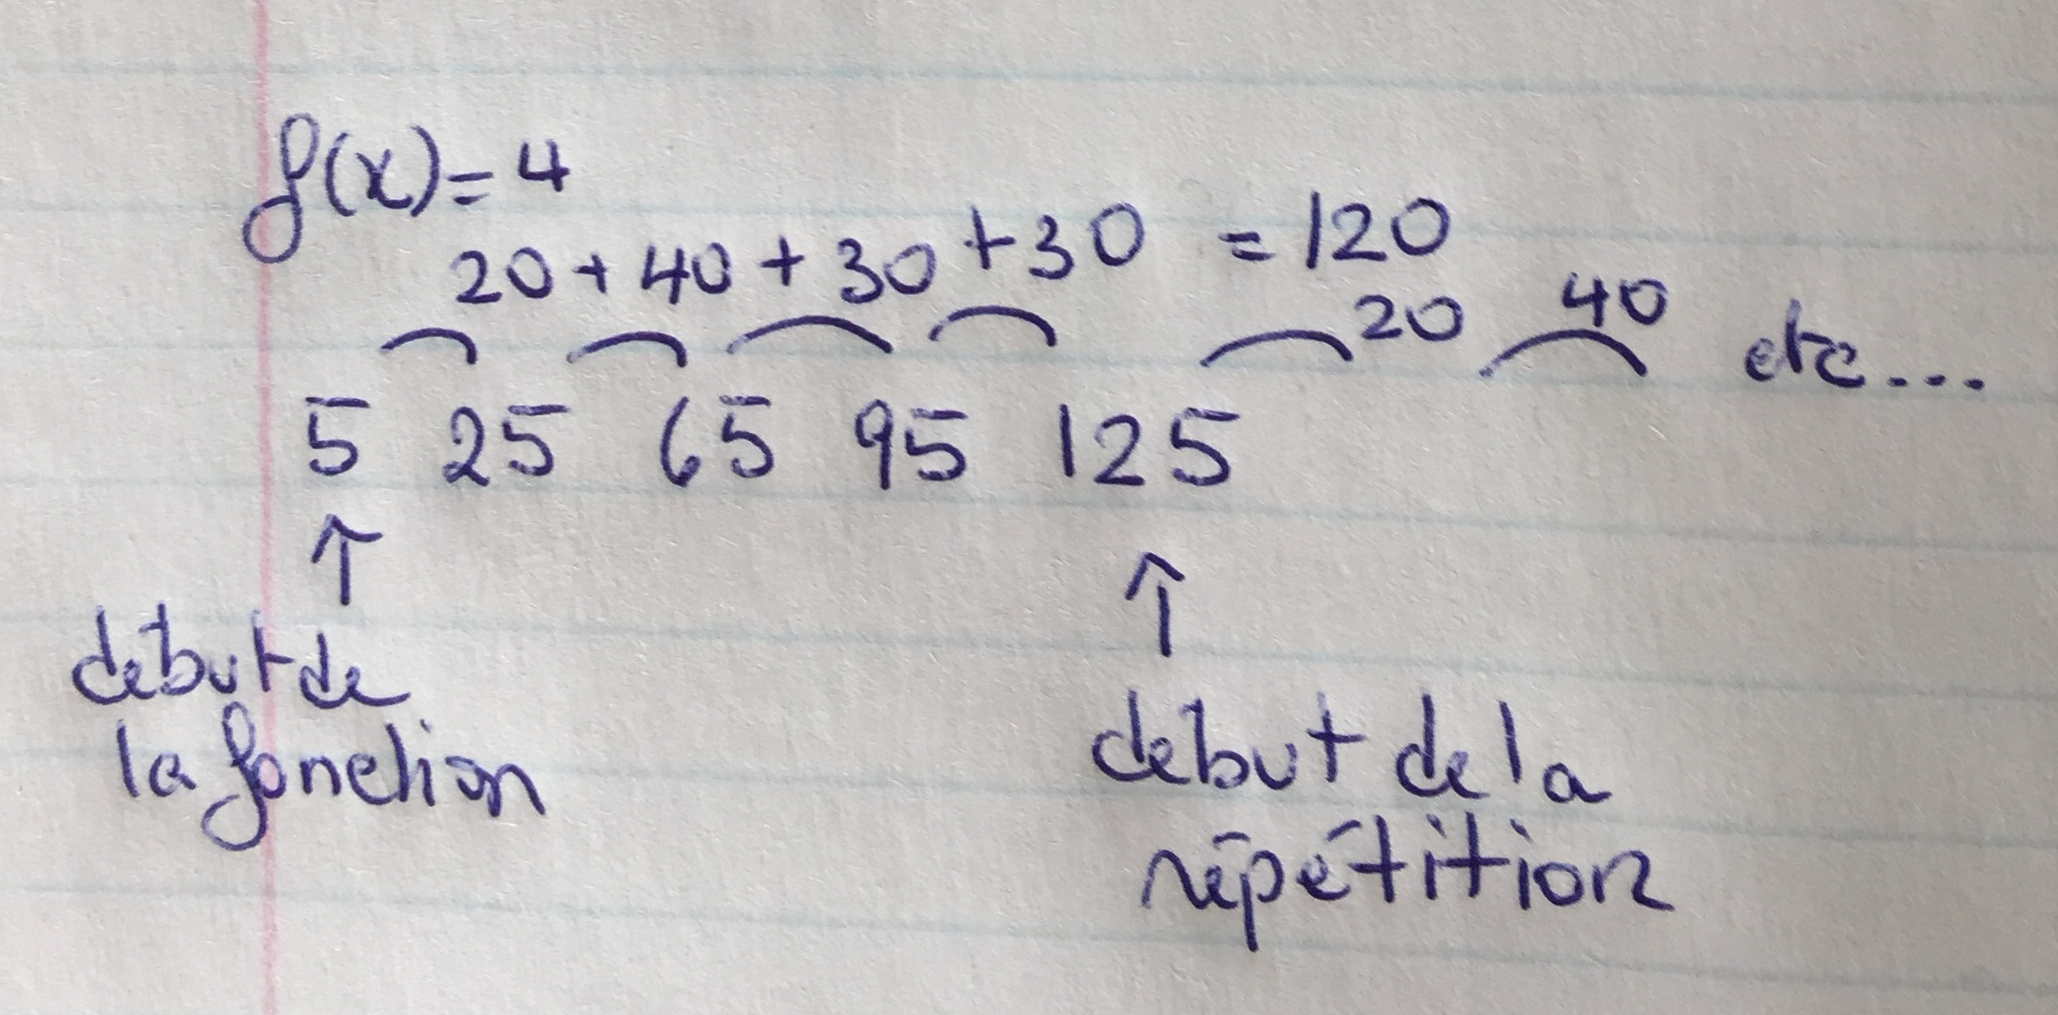 f(x)=4
20+40+30+30 =120
20 40 etc...
5 25 65 95 125
↑ ↑
début de
la fonction
début de la
répétition